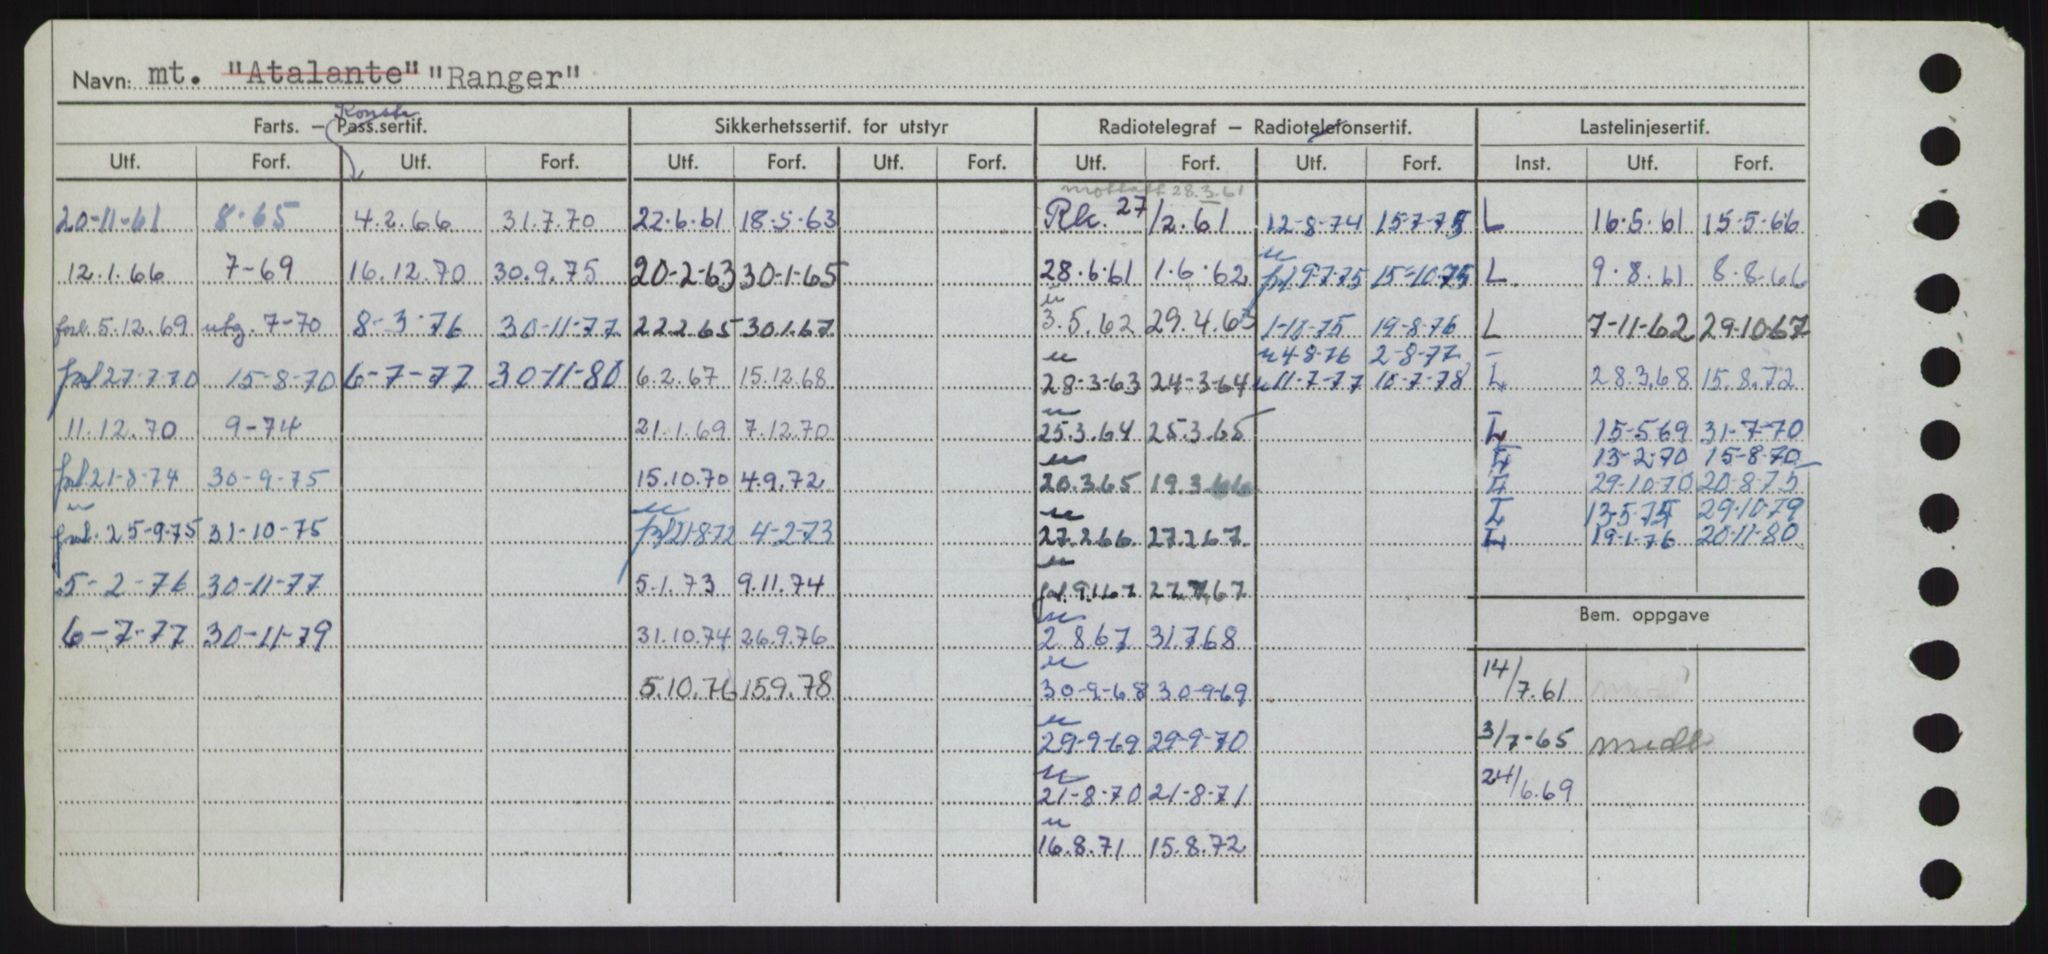 Navn: mt. "Atalante" "Ranger"
Konstr.
Farts. — Pass.sertif. Sikkerhetssertif. for utstyr Radiotelegraf — Radiotelefonsertif. Lastelinjesertif.
Utf. Forf. Utf. Forf. Utf. Forf. Utf. Forf. Utf. Forf. Utf. Forf. Inst. Utf. Forf.
mottatt 28.3.61
20-11-61 8-65 4.2.66 31.7.70 22.6.61 18.5.63 Rk. 27/2.61 12-8-74 15-7-75 L 16.5.61 15.5.66
12.1.66 7-69 16.12.70 30.9.75 20-2-63 30-1-65 28.6.61 1.6.62 frl 9-7-75 15-10-75 L 9.8.61 8.8.66
forl. 5.12.69 utg. 7-70 8-3-76 30-11-77 22.2.65 30.1.67 3.5.62 29.4.63 1-10-75 19-8-76 L 7-11-62 29.10.67
u 4-8-76 2-8-77
frl 27.7.70 15-8-70 6-7-77 30-11-80 6.2.67 15.12.68 28-3-63 24-3-64 u 11-7-77 10-7-78 L 28.3.68 15.8.72
11.12.70 9-74 21.1.69 7.12.70 25.3.64 25.3.65 L 15-5-69 31-7-70
L 13-2-70 15-8-70
frl. 21-8-74 30-9-75 15.10.70 4.9.72 20.3.65 19.3.66 L 29-10-70 20-8-75
L 13-5-75 29-10-79
frl. 25-9-75 31-10-75 frl 21-8-72 4-2-73 27.2.66 27.2.67 L 19-1-76 20-11-80
5-2-76 30-11-77 5.1.73 9.11.74 27.7.67
Bem. oppgave
6-7-77 30-11-79 31.10.74 26.9.76 2.8.67 31.7.68
5.10.76 15.9.78 30-9-68 30-9-69 14/7.61
29-9-69 29-9-70 3/7-65 midl
21-8-70 21-8-71 24/6.69
16.8.71 15.8.72